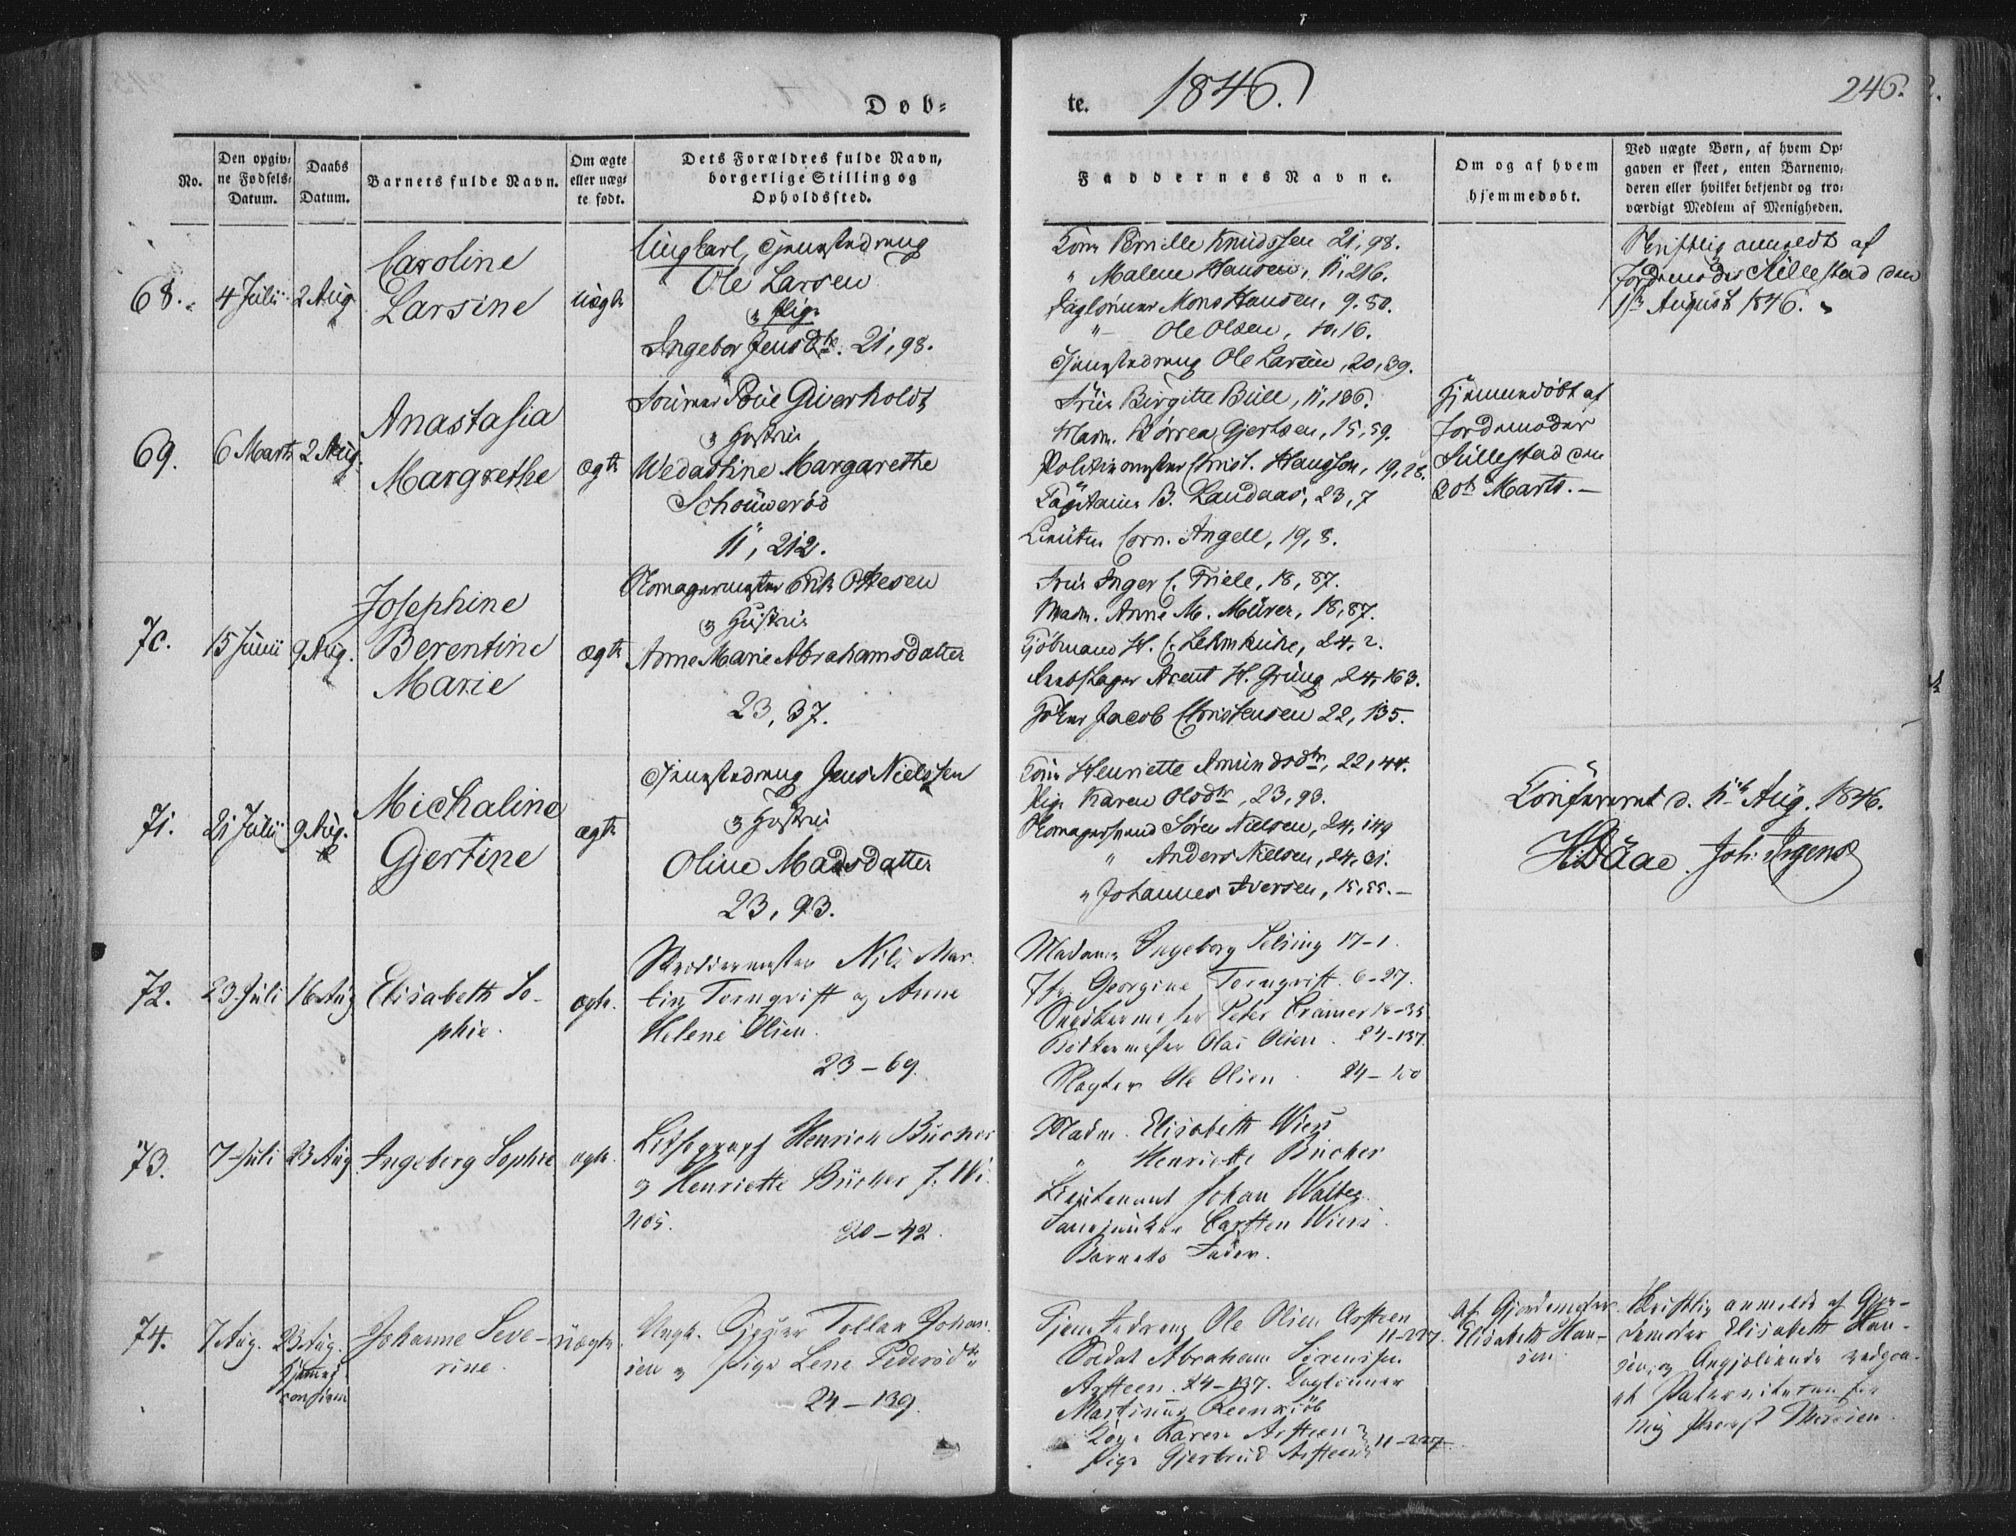 Døb-
te.
1846.
246.
No.
Den opgiv-
ne Fødsels-
Datum.
Daabs
Datum.
Barnets fulde Navn.
Om ægte
eller uæg-
te født.
Dets Forældres fulde Navn,
borgerlige Stilling og
Opholdssted.
Faddernes Navne.
Om og af hvem
hjemmedøbt.
Ved uægte Børn, af hvem Op-
gaven er skeet, enten Barnemo-
deren eller hvilket bekjendt og tro-
værdigt Medlem af Menigheden.
68.
4 Julii
2 Aug
Caroline
Larsine
uægte
Ungkarl, Tjenestedreng
Ole Larsen
& Pige
Ingebor Jensdtr. 21,98.
Kone Pernille Knudssen 21,98.
" Malene Hansen, 11,216.
Dagleiner Mons Hansen, 9.80.
" Ole Olsen, 10.16.
Tjenestedreng Ole Larsen, 20,39.
Skriftlig anmeldt af
Jordemoder Sillestad den
1ste August 1846.
69.
6 Marts
2 Aug.
Anastasia
Margrethe
ægte
Giverholdt
& Hustrue
Wedastine Margarethe
11, 212.
Frue Birgitte Bull, 11,186.
Madm. Gjertsen, 15,59.
Politiemester Christ. Haugson, 19,28.
Capitaine B. Landaas, 23,7
Lieuten. Corn. Angell, 19,8.
Hjemmedøbt af
Jordemoder
Sillestad den
20de Marts.
70.
15 Junii
9 Aug.
Josephine
Berentine
Marie
ægte
Skomagermester Erik Ottesen
& Hustrue
Anne Marie Abrahamsdatter
23, 37.
Frue Inger C. Friele, 18, 87.
Madm. Anne M. Mürer, 18,87.
Kjøbmand H. C. Lehmkuhl, 24,2.
Rebslager Arent H. Grüng 24,163.
Jacob Christensen 22,135.
71.
21 Julii
9 Aug.
Michaline
Gjertine
ægte
Tjenestedreng Jens Nielssen
& Hustrue
Oline Madsdatter
23, 93.
Kone Henriette Amundsdtr, 22,44.
Pige Karen Olsdtr, 23,93.
Skomagersvend Søren Nielsen, 24,149
" Anders Nielsen, 24,31.
" Johannes Iversen, 15,55.
Confereret d. 11te Aug. 1846.
Daae. Joh. Irgens
72.
23 Juli
16 Aug
Elisabeth So-
phie.
ægte.
Skræddermester Nils Mar-
tin Tornqvist og Anne
Helene Olsen.
23-69.
Madame Ingeborg Selsing 17-1.
Jfr. Georgine Tornqvist. 6-27.
Snedkermester Peter Cramer 18-35
Bødkermester Olai Olsen. 24-137.
Slagter Ole Olsen. 24-100
73.
7 Juli
23 Aug
Ingeborg Sophie
ægte.
Lithograph Henrich Bücher
og Henriette Bücher f. Wi-
20-42.
Madm. Elisabeth Wies
" Henriette Bücher
Lieutenant Johan Walter
Fanejunker Carsten Wies.
Barnets Fader.
74.
7 Aug.
23 Aug.
Johanne Seve-
rine.
uægte
Ungk. Tollak Johan-
sen og Pige Lene Pedersdtr
24-139.
Tjenestedreng Ole Olsen Arsteen
11-227.
Soldat Abraham Sørenssen
Arsteen. 24-137. Dagleiner
Martinus
Kone Karen Arsteen
Pige Gjertrud Arsteen 11-227
Af Gjordemoder
Elisabeth Han-
sen.
Skriftlig anmeldt af Gjor-
demoder Elisabeth Han-
sen, og Angjeldende vedgaa-
et Paterniteten for
mig Provst